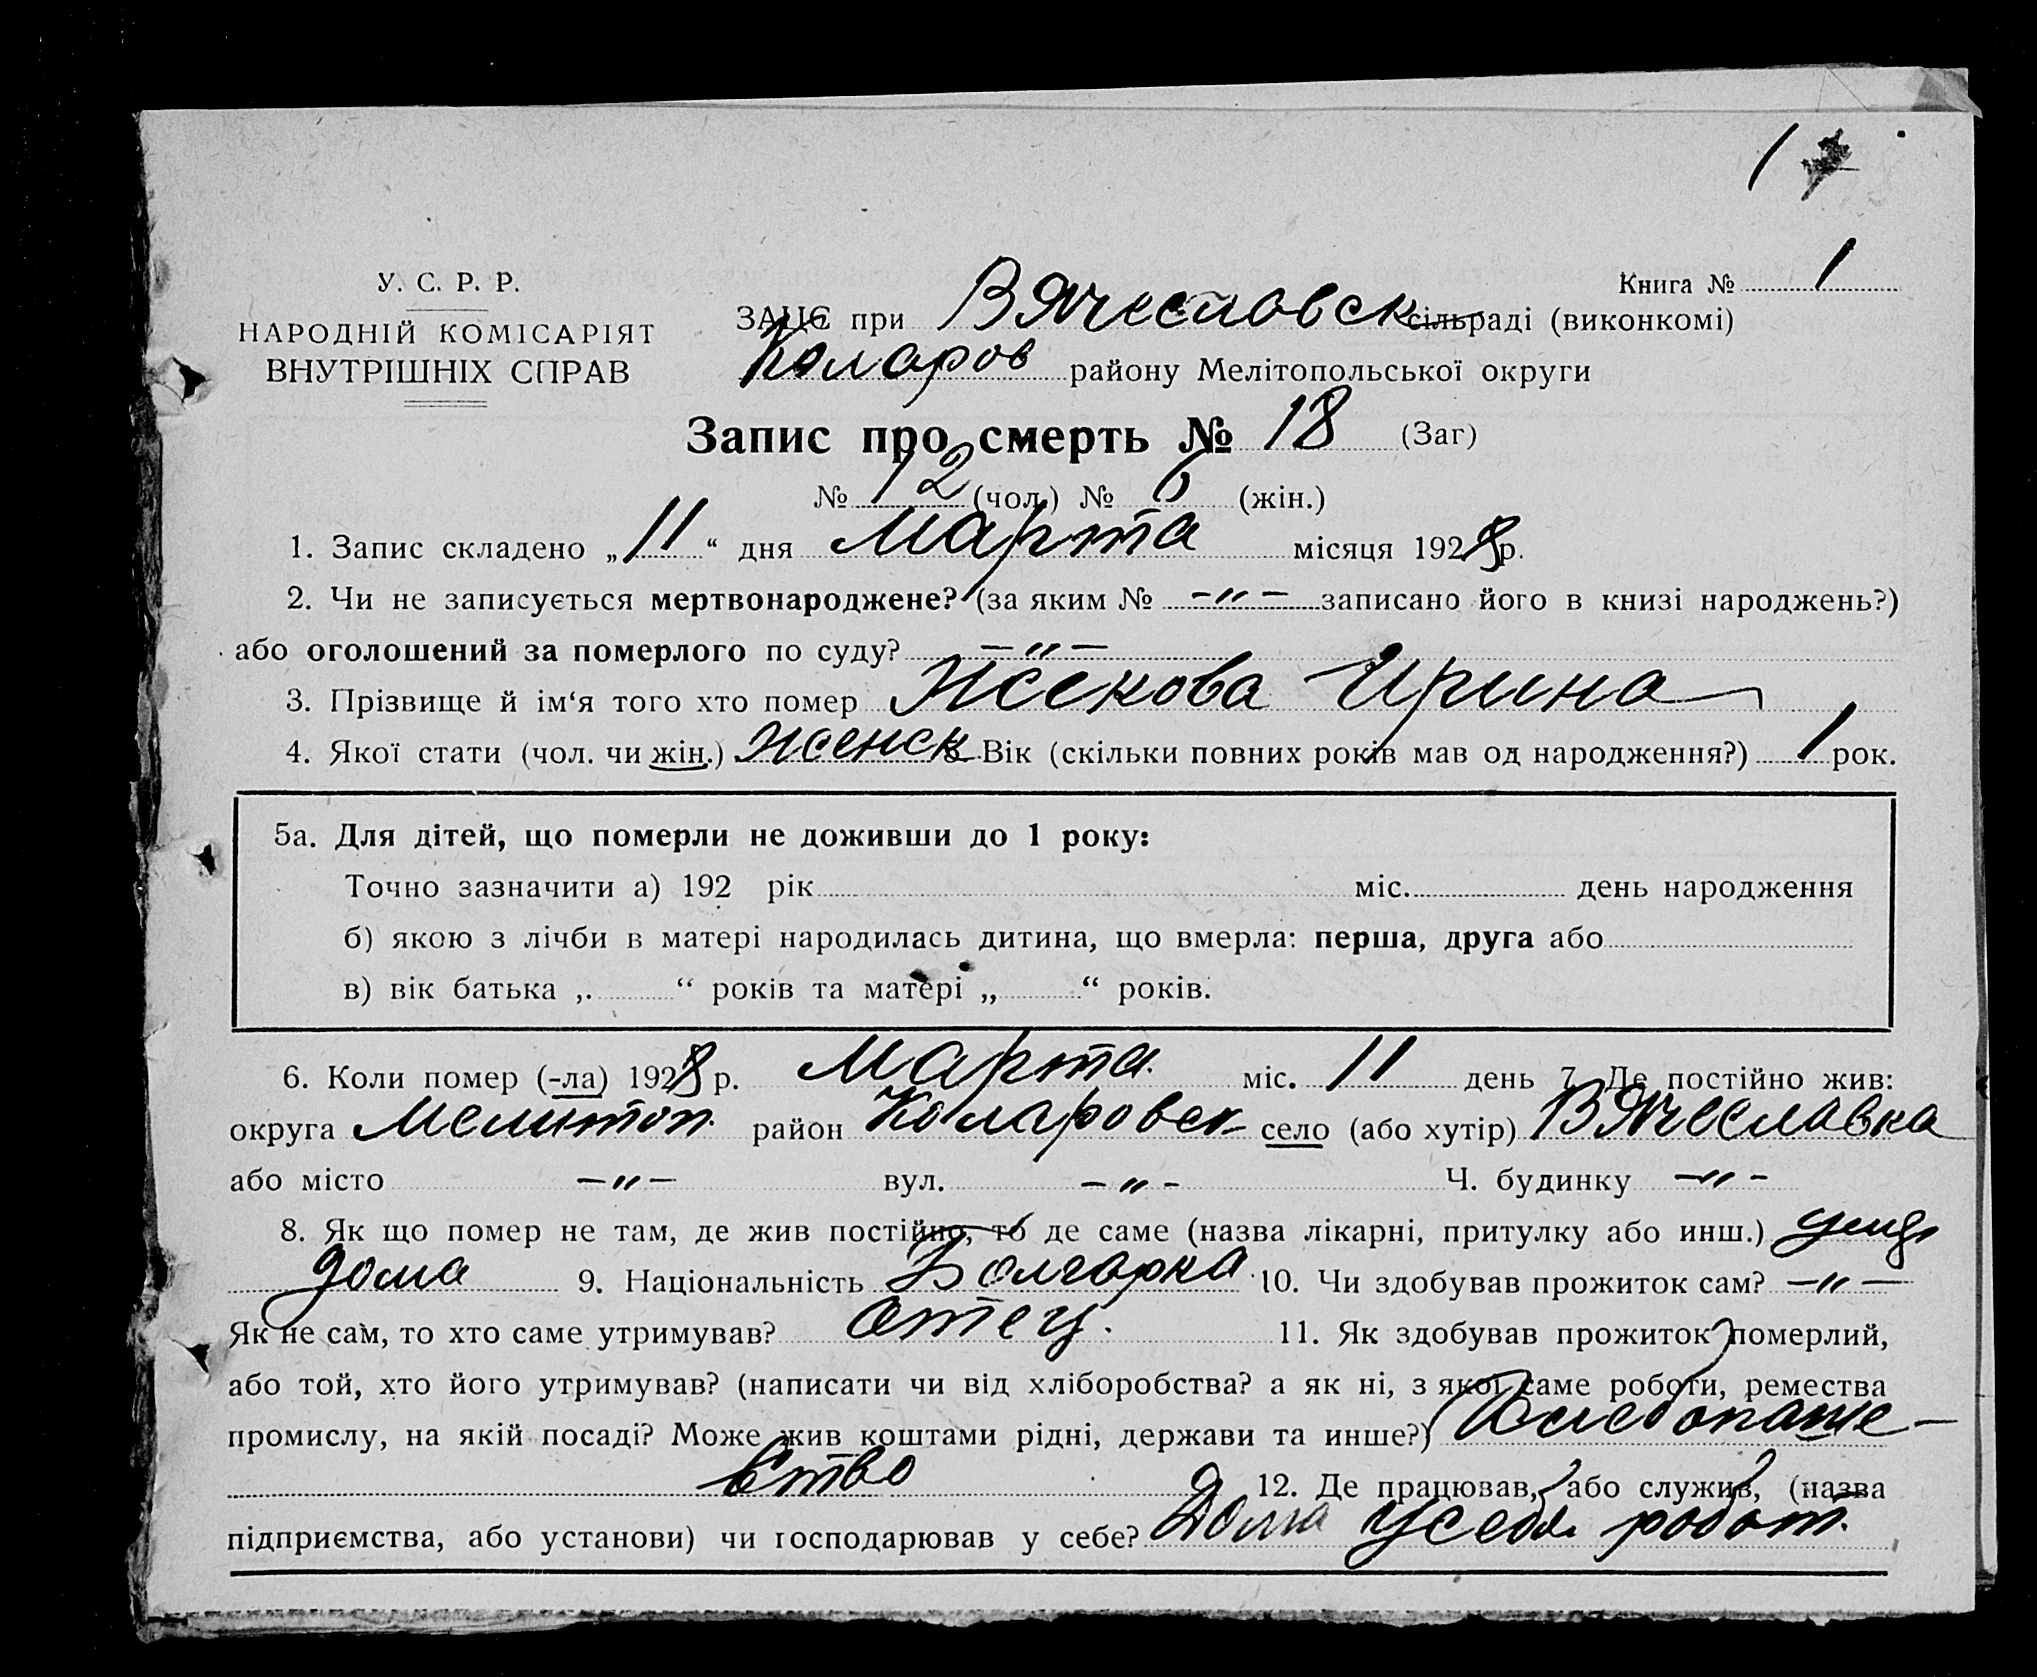 1
У. С. Р. Р.
НАРОДНІЙ КОМІСАРІЯТ
ВНУТРІШНІХ СПРАВ
Книга № 1
ЗАЦС при Вячесловск сільраді (виконкомі)
Коларов району Мелітопольської округи
Запис про смерть № 18 (Заг)
№ 12 (чол.) № 6 (жін.)
1. Запис складено „11“ дня Марта місяця 1928 р.
2. Чи не записується мертвонароджене? (за яким № -"- записано його в книзі народжень?)
або оголошений за померлого по суду? -"-
3. Прізвище й ім‘я того хто помер Жекова Ирина
4. Якої стати (чол. чи жін.) женск 5 Вік (скільки повних років мав од народження?) 1 рок.
5а. Для дітей, що померли не доживши до 1 року:
Точно зазначити а) 192 рік міс. день народження
б) якою з лічби в матері народилась дитина, що вмерла: перша, друга або
в) вік батька „ “ років та матері „ “ років.
6. Коли помер (-ла) 1928 р. Марта міс. 11 день 7. Де постійно жив:
округа Мелитоп. район Коларовск село (або хутір) Вячеславка
або місто -"- вул. -"- Ч. будинку -"-
8. Як що помер не там, де жив постійно, то де саме (назва лікарні, притулку або инш.)
дома 9. Національність Болгарка 10. Чи здобував прожиток сам? -"-
Як не сам, то хто саме утримував? отец. 11. Як здобував прожиток померлий,
або той, хто його утримував? (написати чи від хліборобства? а як ні, з якої саме роботи, ремества
промислу, на якій посаді? Може жив коштами рідні, держави та инше?) Хлебопаше-
ство 12. Де працював, або служив, (назва
підприємства, або установи) чи господарював у себе? Дома у себя работ.